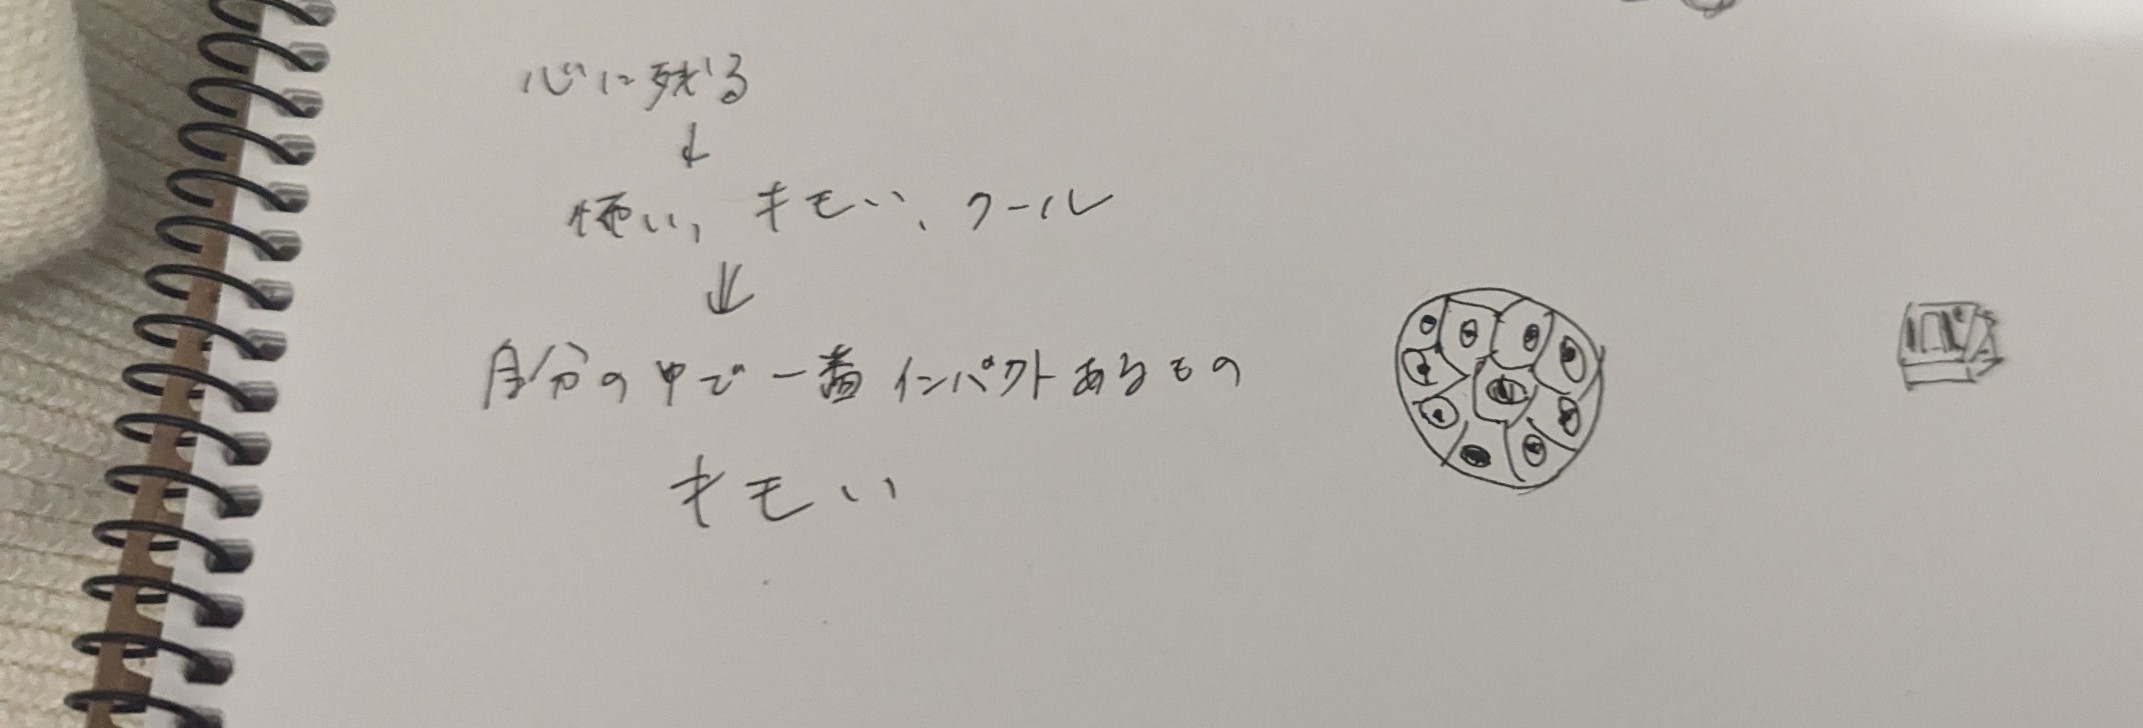 心に残る
怖い、キモい、クール
自分の中で一番インパクトあるもの
キモい